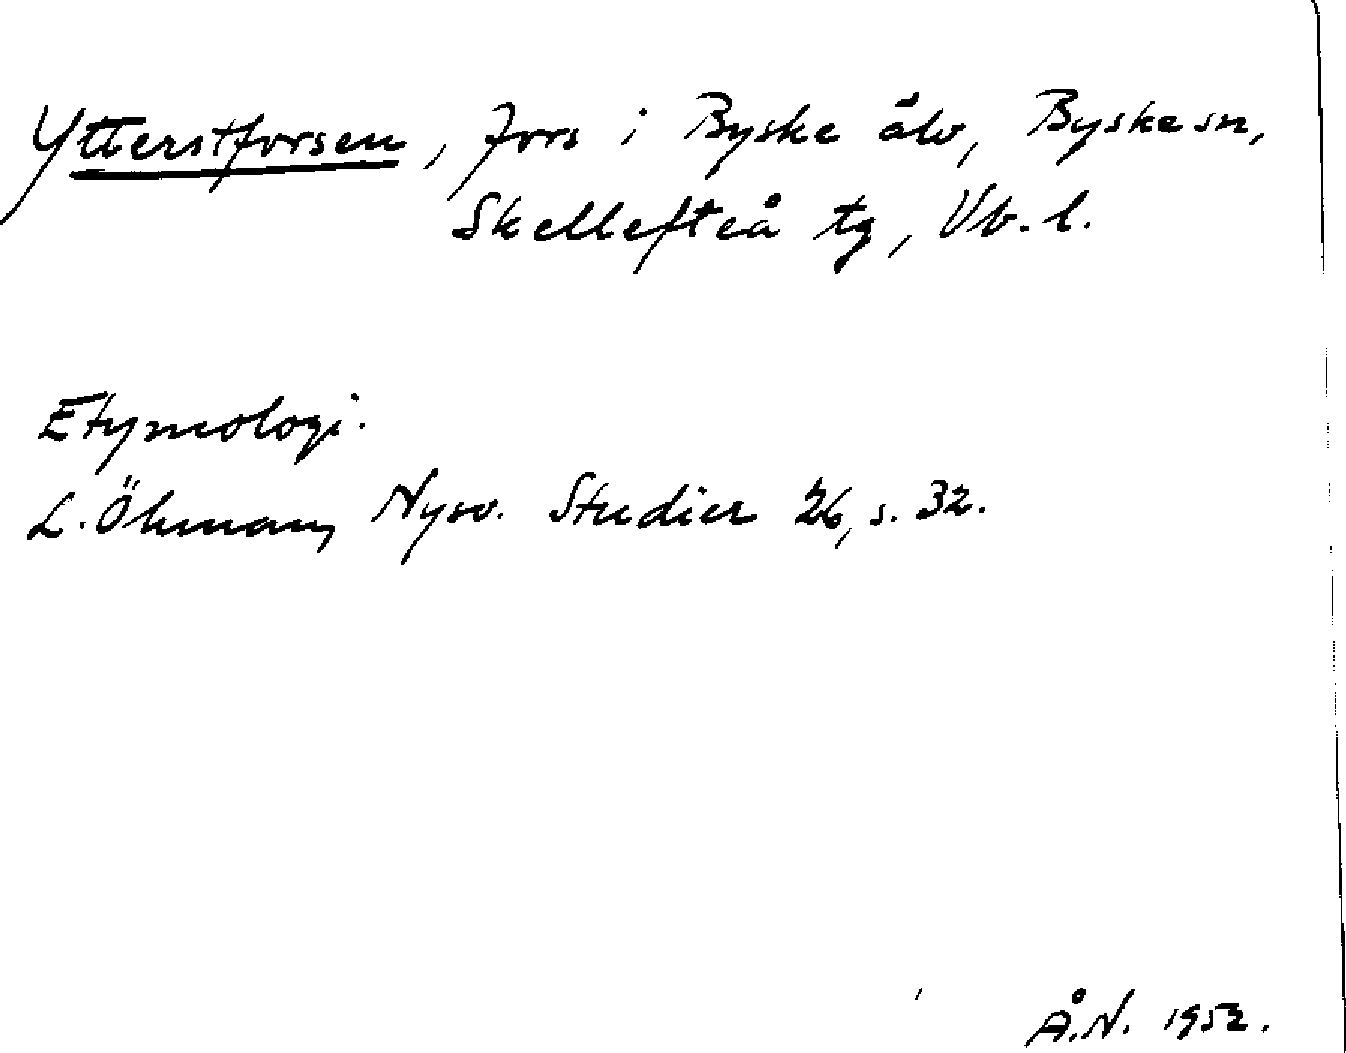 Ytterstforsen, fors i Byske älv, Byske sn,
Skellefteå tg, Vb. l.
Etymologi.
L. Öhman, Nysv. Studier 26, s. 32.
Å.N. 1952.